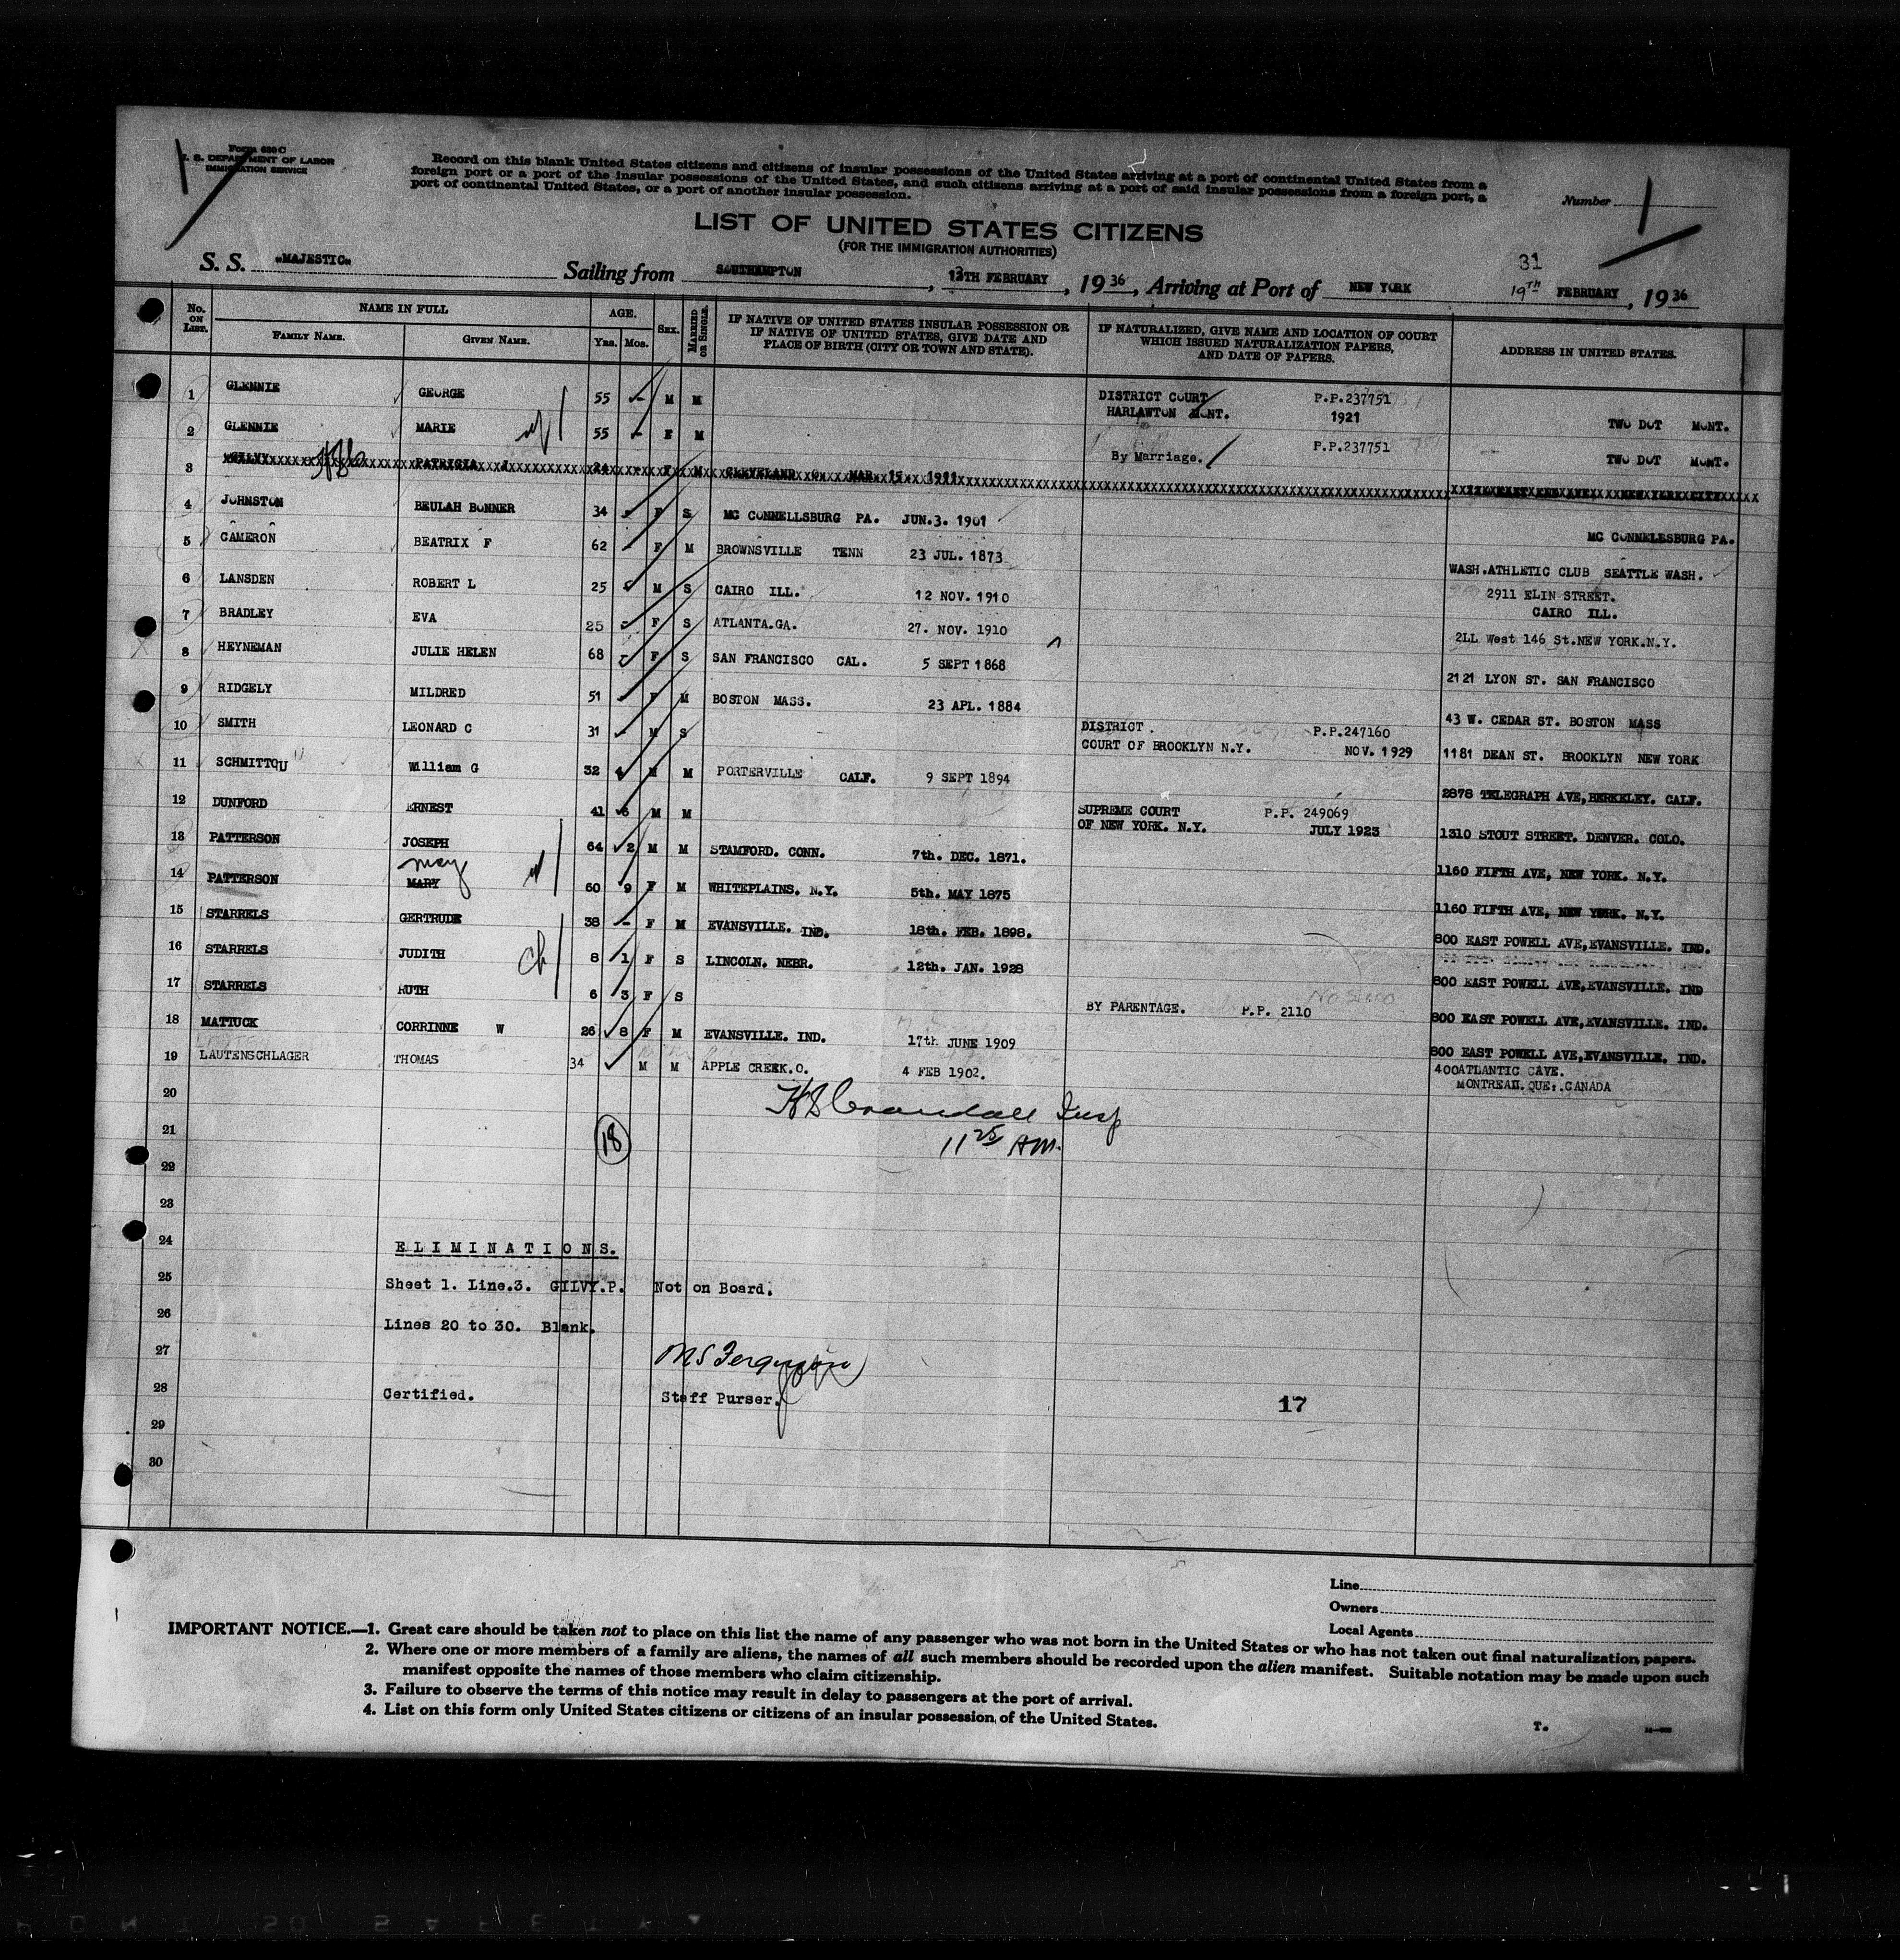 Form 630 C
U. S. DEPARTMENT OF LABOR
IMMIGRATION SERVICE
Record on this blank United States citizens and citizens of insular possessions of the United States arriving at a port of continental United States from a
foreign port or a port of the insular possessions of the United States, and such citizens arriving at a port of said insular possessions from a foreign port, a
port of continental United States, or a port of another insular possession.
Number 1
LIST OF UNITED STATES CITIZENS
(FOR THE IMMIGRATION AUTHORITIES)
31
S. S. "MAJESTIC" Sailing from SOUTHAMPTON, 13TH FEBRUARY, 1936, Arriving at Port of NEW YORK 19th FEBRUARY, 1936
No. ON LIST. NAME IN FULL FAMILY NAME. GIVEN NAME. AGE. Yrs. Mos. SEX. MARRIED OR SINGLE. IF NATIVE OF UNITED STATES INSULAR POSSESSION OR IF NATIVE OF UNITED STATES, GIVE DATE AND PLACE OF BIRTH (CITY OR TOWN AND STATE). IF NATURALIZED, GIVE NAME AND LOCATION OF COURT WHICH ISSUED NATURALIZATION PAPERS, AND DATE OF PAPERS. ADDRESS IN UNITED STATES.
1 GLENNIE GEORGE 55 - M M DISTRICT COURT P.P.237751
HARLAWTON MONT. 1921 TWO DOT MONT.
2 GLENNIE MARIE wf 55 - F M By Marriage. P.P.237751 TWO DOT MONT.
3 GILVY PATRICIA 24 - F M CLEVELAND O. MAR 15 1911 NEW YORK CITY
4 JOHNSTON BEULAH BONNER 34 - F S MC CONNELLSBURG PA. JUN.3. 1901 MC CONNELESBURG PA.
5 CAMERON BEATRIX F 62 - F M BROWNSVILLE TENN 23 JUL. 1873 WASH.ATHLETIC CLUB SEATTLE WASH.
6 LANSDEN ROBERT L 25 M S CAIRO ILL. 12 NOV. 1910 2911 ELIN STREET.
CAIRO ILL.
7 BRADLEY EVA 25 - F S ATLANTA.GA. 27. NOV. 1910 2LL West 146 St.NEW YORK.N.Y.
8 HEYNEMAN JULIE HELEN 68 - F S SAN FRANCISCO CAL. 5 SEPT 1868 2121 LYON ST. SAN FRANCISCO
9 RIDGELY MILDRED 51 - F M BOSTON MASS. 23 APL. 1884 43 W. CEDAR ST. BOSTON MASS
10 SMITH LEONARD C 31 - M S DISTRICT. P.P.247160
COURT OF BROOKLYN N.Y. NOV. 1929 1181 DEAN ST. BROOKLYN NEW YORK
11 SCHMITTOU William G 32 M M PORTERVILLE CALF. 9 SEPT 1894 2878 TELEGRAPH AVE,BERKELEY. CALF.
12 DUNFORD ERNEST 41 6 M M SUPREME COURT P.P. 249069
OF NEW YORK. N.Y. JULY 1923 1310 STOUT STREET. DENVER. COLO.
13 PATTERSON JOSEPH 64 2 M M STAMFORD. CONN. 7th. DEC. 1871. 1160 FIFTH AVE, NEW YORK. N.Y.
may
14 PATTERSON MARY wf 60 9 F M WHITEPLAINS. N.Y. 5th. MAY 1875 1160 FIFTH AVE, NEW YORK. N.Y.
15 STARRELS GERTRUDE 38 - F M EVANSVILLE. IND. 18th. FEB. 1898. 800 EAST POWELL AVE,EVANSVILLE. IND.
16 STARRELS JUDITH ch 8 1 F S LINCOLN. NEBR. 12th. JAN. 1928 800 EAST POWELL AVE,EVANSVILLE. IND
17 STARRELS RUTH 6 3 F S BY PARENTAGE. P.P. 2110 800 EAST POWELL AVE,EVANSVILLE. IND.
18 MATTUCK CORRINNE W 26 8 F M EVANSVILLE. IND. 17th JUNE 1909 800 EAST POWELL AVE,EVANSVILLE. IND.
19 LAUTENSCHLAGER THOMAS 34 M M APPLE CREEK.O. 4 FEB 1902. 400ATLANTIC CAVE.
MONTREAL. QUE:.CANADA
20 H S Crandall Insp
21 18 11 25 AM.
22
23
24 ELIMINATIONS.
25 Sheet 1. Line.3. GILVY.P. Not on Board.
26 Lines 20 to 30. Blank.
27 M S Ferguson
28 Certified. Staff Purser. 17
29
30
Line
Owners
Local Agents
IMPORTANT NOTICE.—1. Great care should be taken not to place on this list the name of any passenger who was not born in the United States or who has not taken out final naturalization papers.
2. Where one or more members of a family are aliens, the names of all such members should be recorded upon the alien manifest. Suitable notation may be made upon such
manifest opposite the names of those members who claim citizenship.
3. Failure to observe the terms of this notice may result in delay to passengers at the port of arrival.
4. List on this form only United States citizens or citizens of an insular possession of the United States.
T.